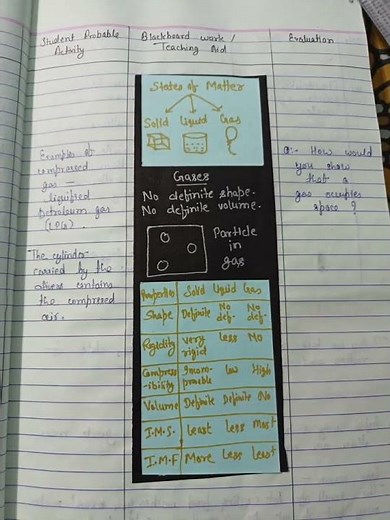 Student Probable
Activity
Blackboard work /
Teaching Aid
Evaluation
Examples of
compressed
gas —
liquified
petroleum gas
(LPG)
The cylinder
carried by the
divers contains
the compressed
air.
States of Matter
Solid Liquid Gas
Gases
No definite shape.
No definite volume.
Particle
in
gas
Properties Solid Liquid Gas
Shape Definite No def. No def.
Rigidity very rigid less No
Compress-ibility Incom-pressable low High
Volume Definite Definite No
I.M.S. Least Less Most
I.M.F More Less Least
Q- How would
you show
that a
gas occupies
space ?